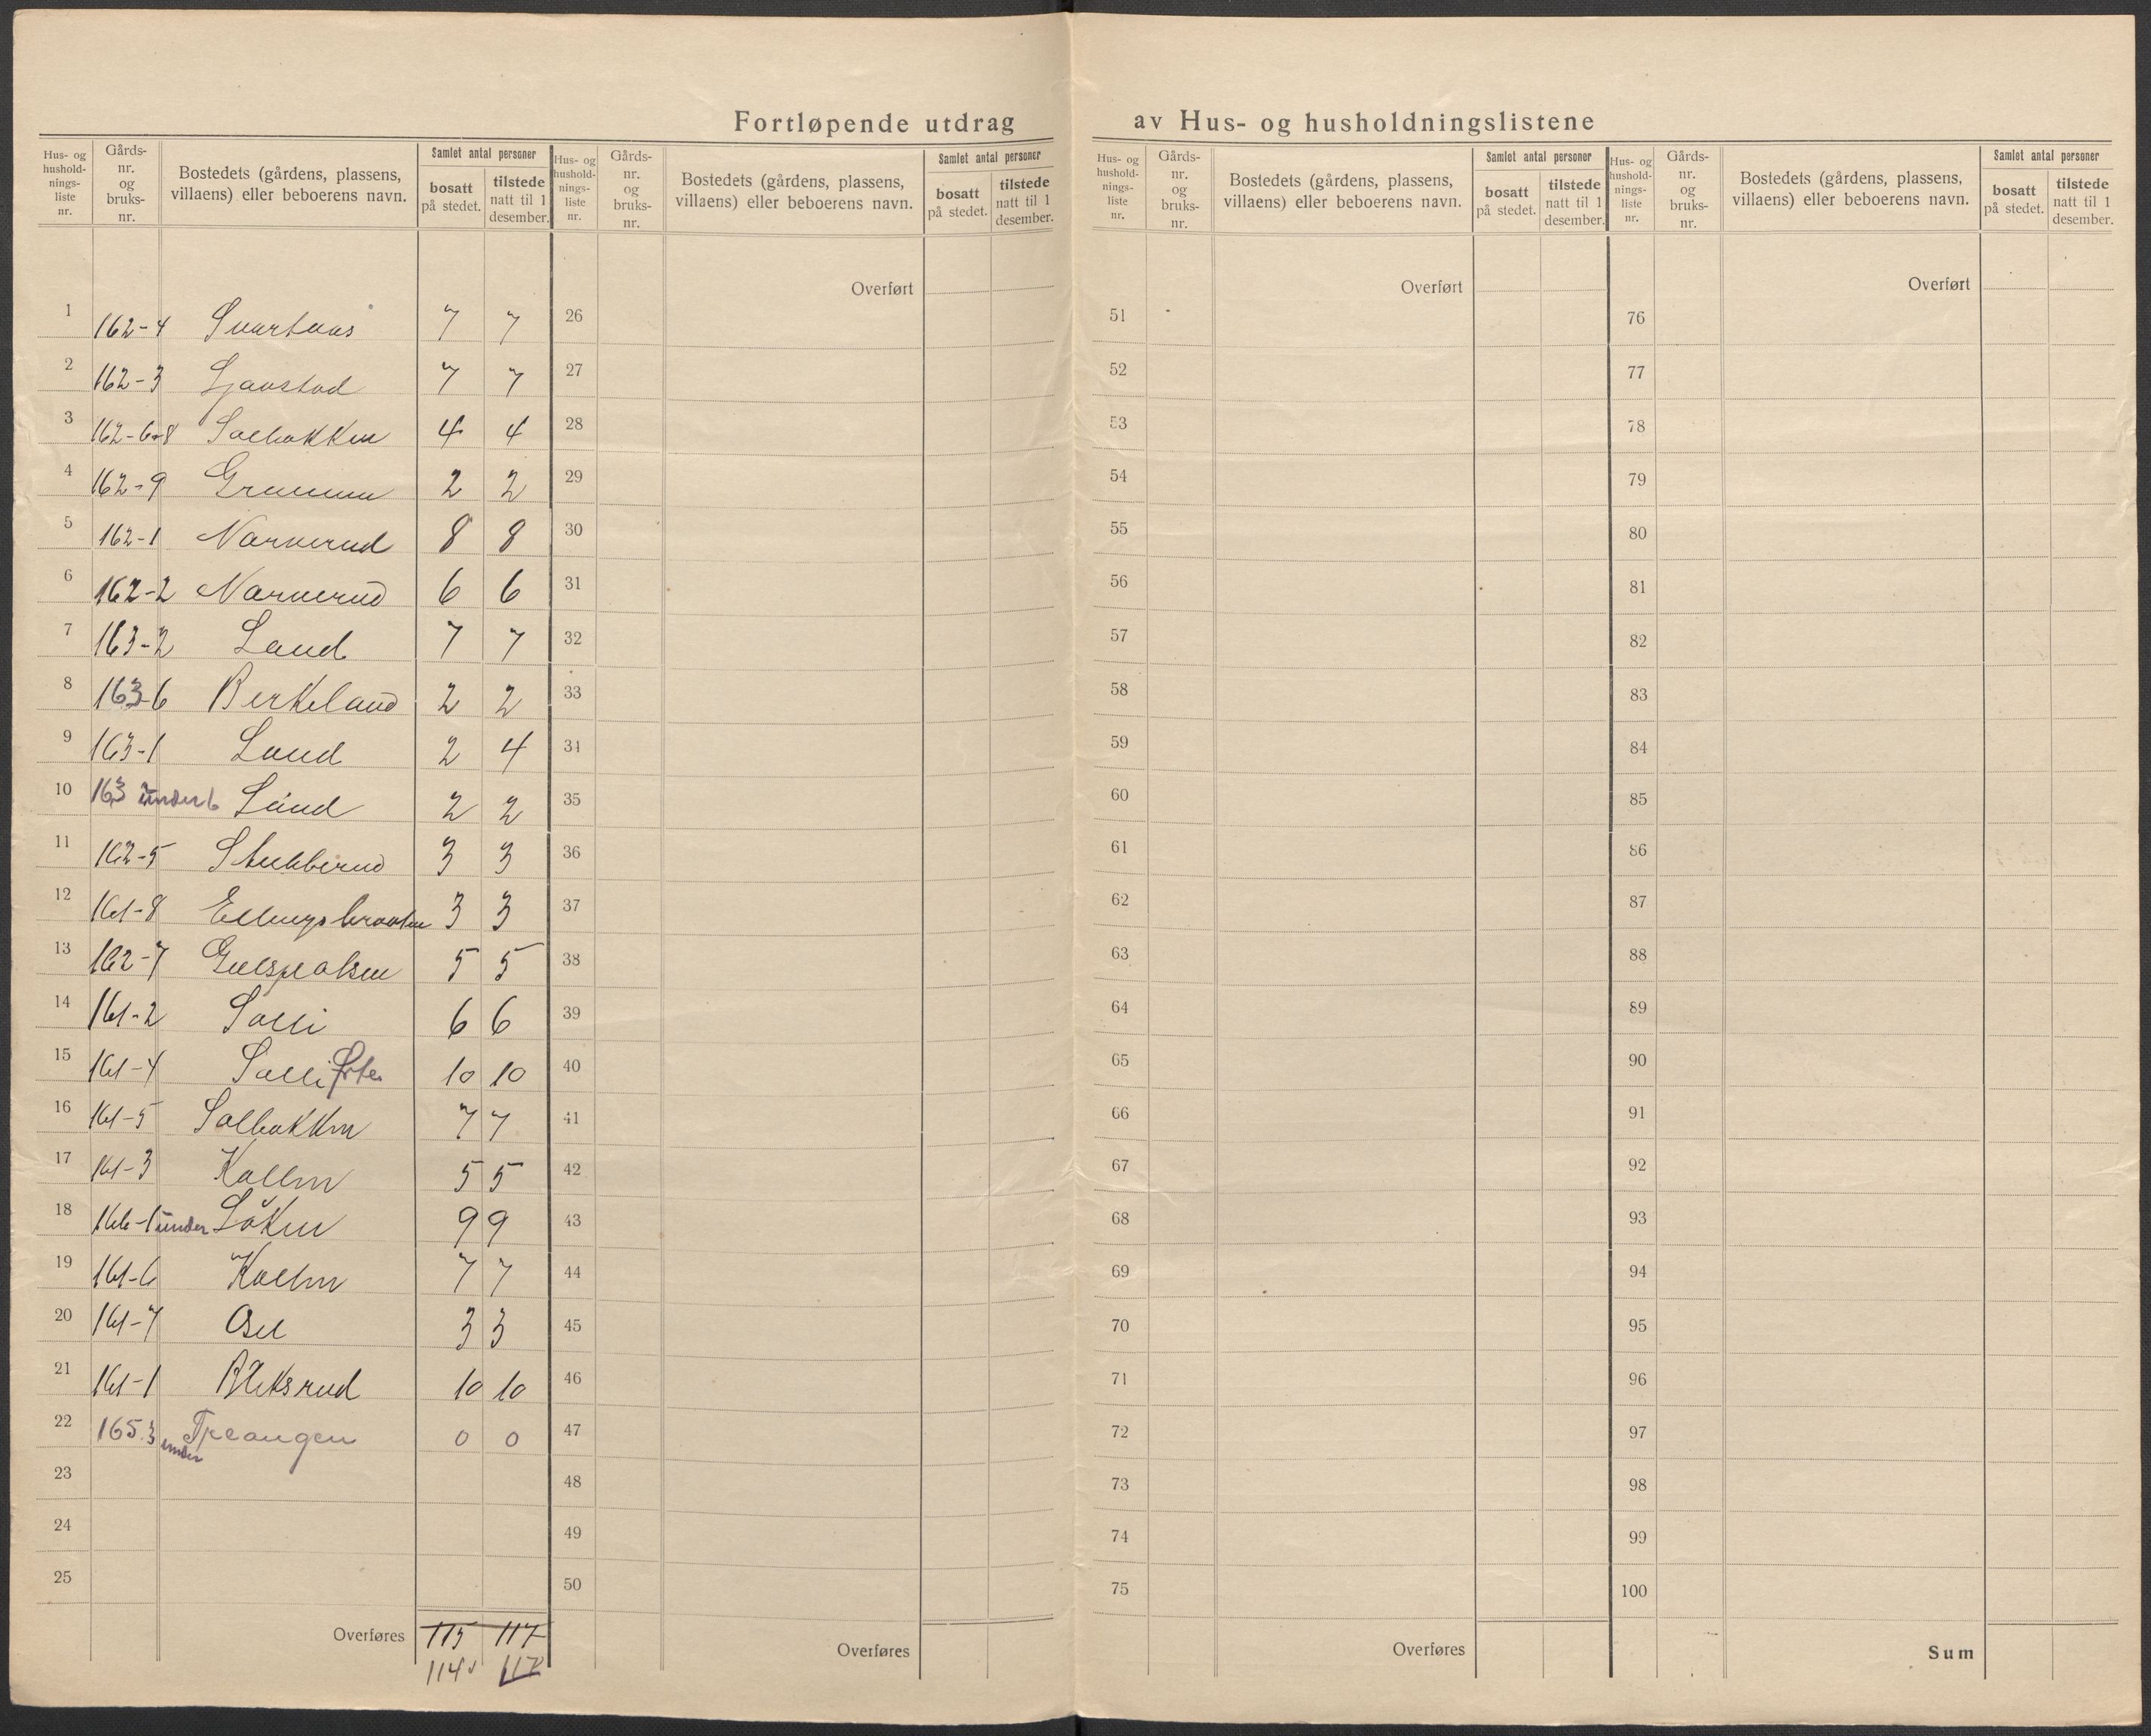 Fortløpende utdrag av Hus- og husholdningslistene
Hus- og hushold-nings-liste nr.
Gårds-nr. og bruks-nr.
Bostedets (gårdens, plassens, villaens) eller beboerens navn.
Samlet antal personer
bosatt på stedet.
tilstede natt til 1 desember.
1 162-4 7 7
2 162-3 7 7
3 162-6+8 Solbakken 4 4
4 162-9 2 2
5 162-1 Narverud 8 8
6 162-2 Narverud 6 6
7 163-2 Laud 7 7
8 163-6 Birkeland 2 2
9 163-1 Laud 2 4
10 163 under 6 Laud 2 2
11 162-5 Stubberud 3 3
12 161-8 Ellingsbraaten 3 3
13 162-7 5 5
14 161-2 Solli 6 6
15 161-4 Solli 10 10
16 161-5 Solbakken 7 7
17 161-3 Kollen 5 5
18 166-1 under Løken 9 9
19 161-6 Kollen 7 7
20 161-7 3 3
21 161-1 Bleksrud 10 10
22 165.3 under 0 0
23
24
25
Overføres 115 117
114 117
Hus- og hushold-nings-liste nr.
Gårds-nr. og bruks-nr.
Bostedets (gårdens, plassens, villaens) eller beboerens navn.
Samlet antal personer
bosatt på stedet.
tilstede natt til 1 desember.
Overført
26
27
28
29
30
31
32
33
34
35
36
37
38
39
40
41
42
43
44
45
46
47
48
49
50
Overføres
Hus- og hushold-nings-liste nr.
Gårds-nr. og bruks-nr.
Bostedets (gårdens, plassens, villaens) eller beboerens navn.
Samlet antal personer
bosatt på stedet.
tilstede natt til 1 desember.
Overført
51
52
53
54
55
56
57
58
59
60
61
62
63
64
65
66
67
68
69
70
71
72
73
74
75
Overføres
Hus- og hushold-nings-liste nr.
Gårds-nr. og bruks-nr.
Bostedets (gårdens, plassens, villaens) eller beboerens navn.
Samlet antal personer
bosatt på stedet.
tilstede natt til 1 desember.
Overført
76
77
78
79
80
81
82
83
84
85
86
87
88
89
90
91
92
93
94
95
96
97
98
99
100
Sum